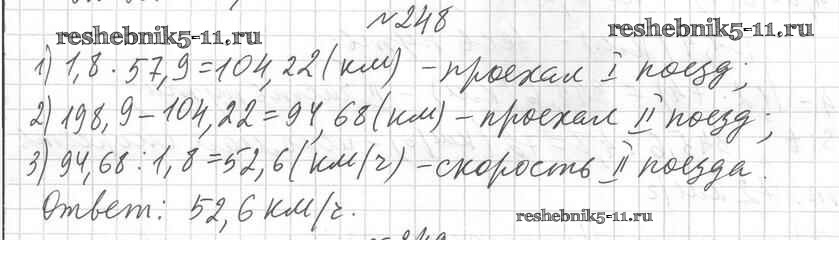 №248
reshebnik5-11.ru reshebnik5-11.ru
1) 1,8 · 57,9 = 104,22 (км) – проехал I поезд;
2) 198,9 – 104,22 = 94,68 (км) – проехал II поезд;
3) 94,68 : 1,8 = 52,6 (км/ч) – скорость II поезда.
Ответ: 52,6 км/ч.
reshebnik5-11.ru